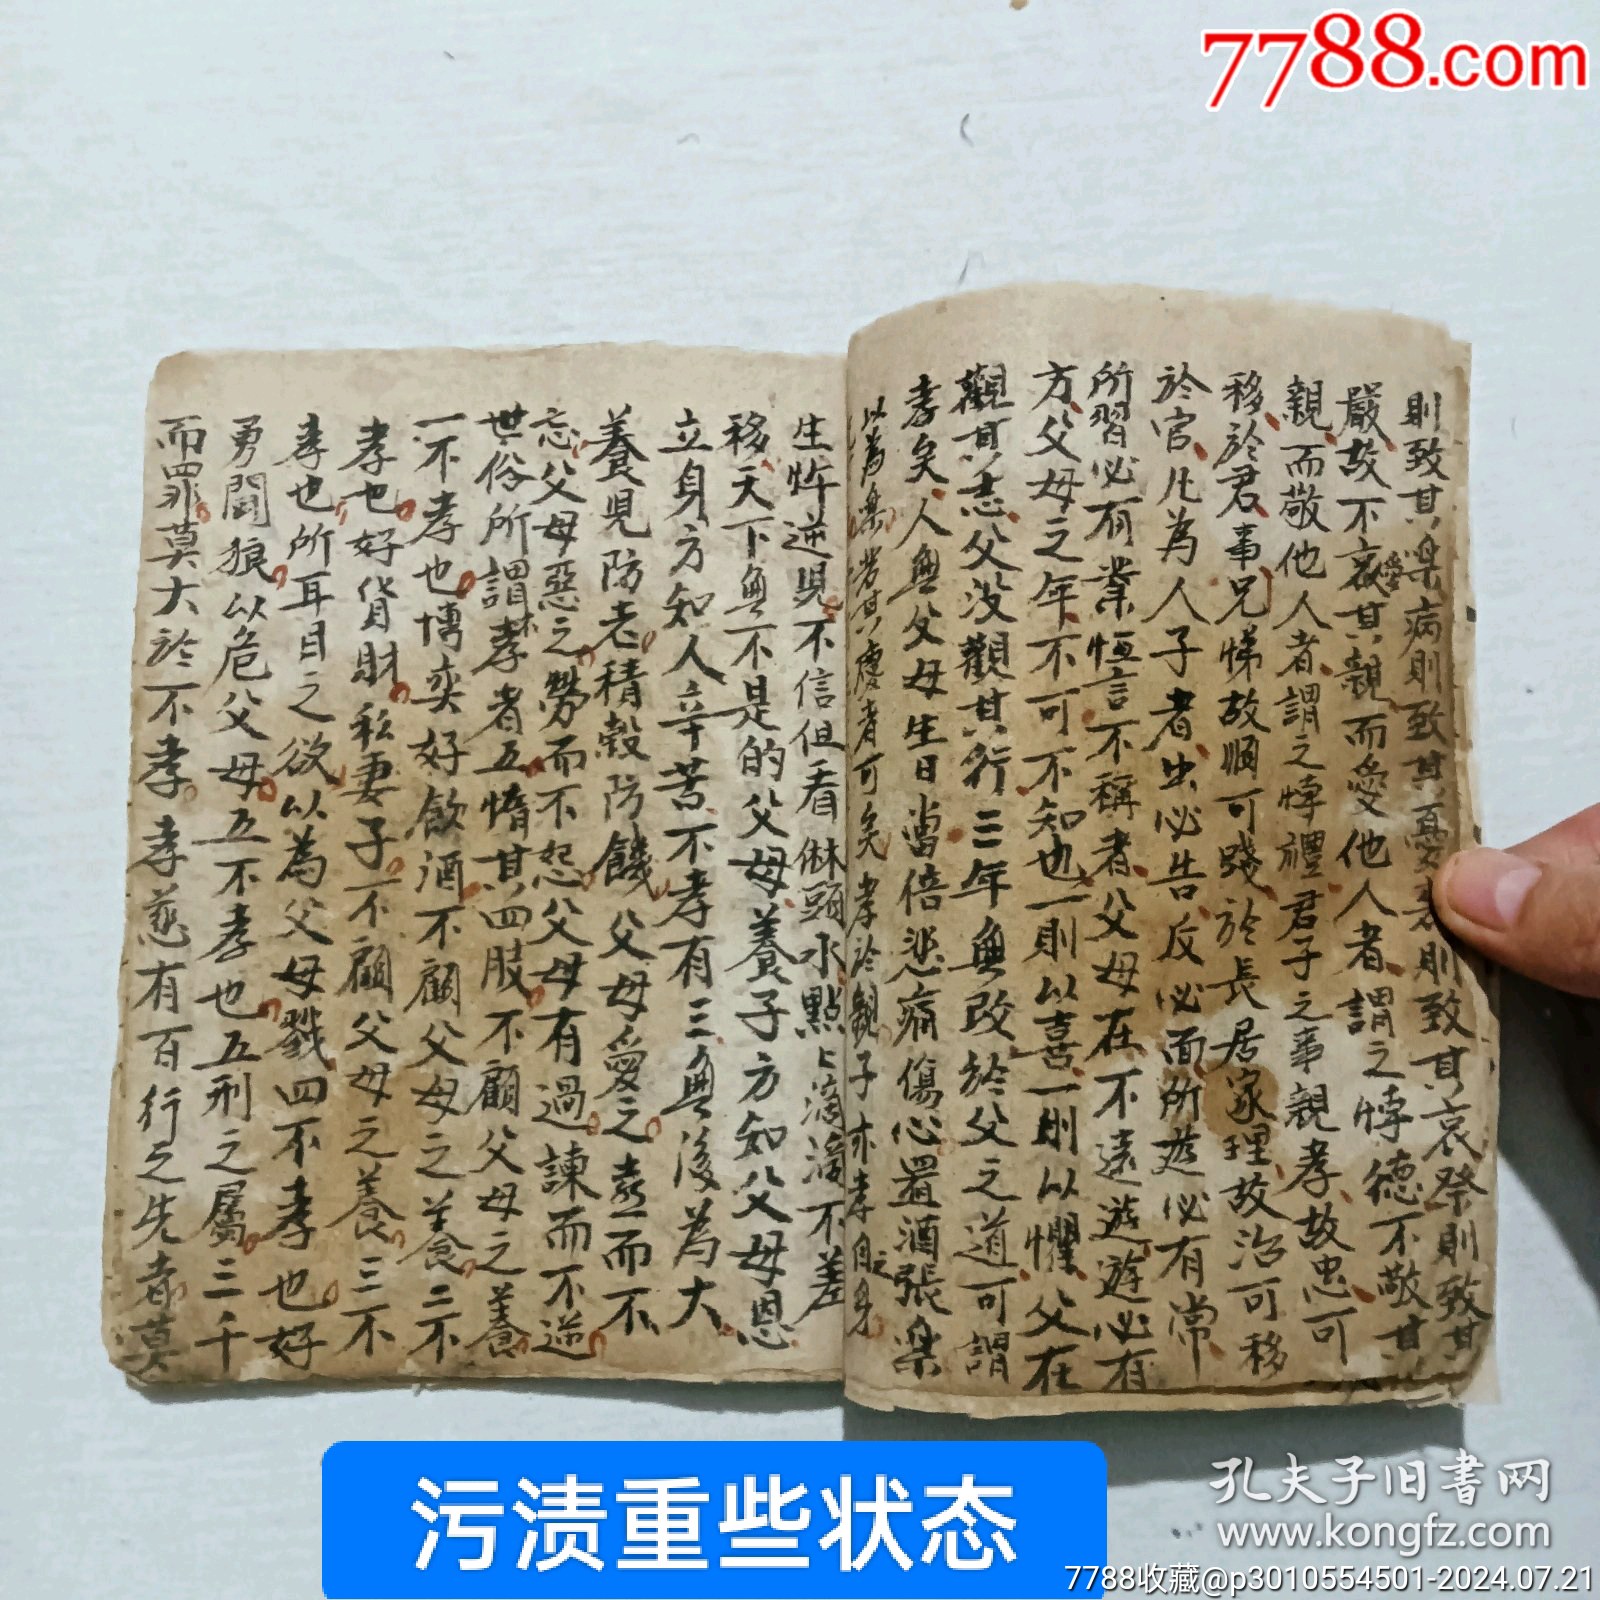 7788.com
則致其樂病則致其憂喪則致其哀祭則致其
嚴故不哀愛其親而愛他人者謂之悖德不敬其
親而敬他人者謂之悖禮君子之事親孝故忠可
移於君事兄悌故順可踐於長居家理故治可移
於官凡為人子者出必告反必面所遊必有常
所習必有業恒言不稱者父母在不遠遊遊必有
方父母之年不可不知也一則以喜一則以懼父在
觀其志父没觀其行三年無改於父之道可謂
孝矣人無父母生日當倍悲痛傷心置酒張樂
以為樂若其慶者可矣孝於親子亦孝自之身
生忤逆児不信但看檐頭水點上滴滴不差
移天下無不是的父母養子方知父母恩
立身方知人辛苦不孝有三無後為大
養児防老積穀防饑父母愛之喜而不
忘父母惡之勞而不怨父母有過諫而不逆
世俗所謂不孝者五惰其四肢不顧父母之養
一不孝也博奕好飲酒不顧父母之養二不
孝也好貨財私妻子不顧父母之養三不
孝也所耳目之欲以為父母戮四不孝也好
勇鬪狼以危父母五不孝也五刑之屬三千
而罪莫大於不孝孝慈有百行之先者莫
污渍重些状态
孔夫子旧書网
www.kongfz.com
7788收藏@p3010554501-2024.07.21